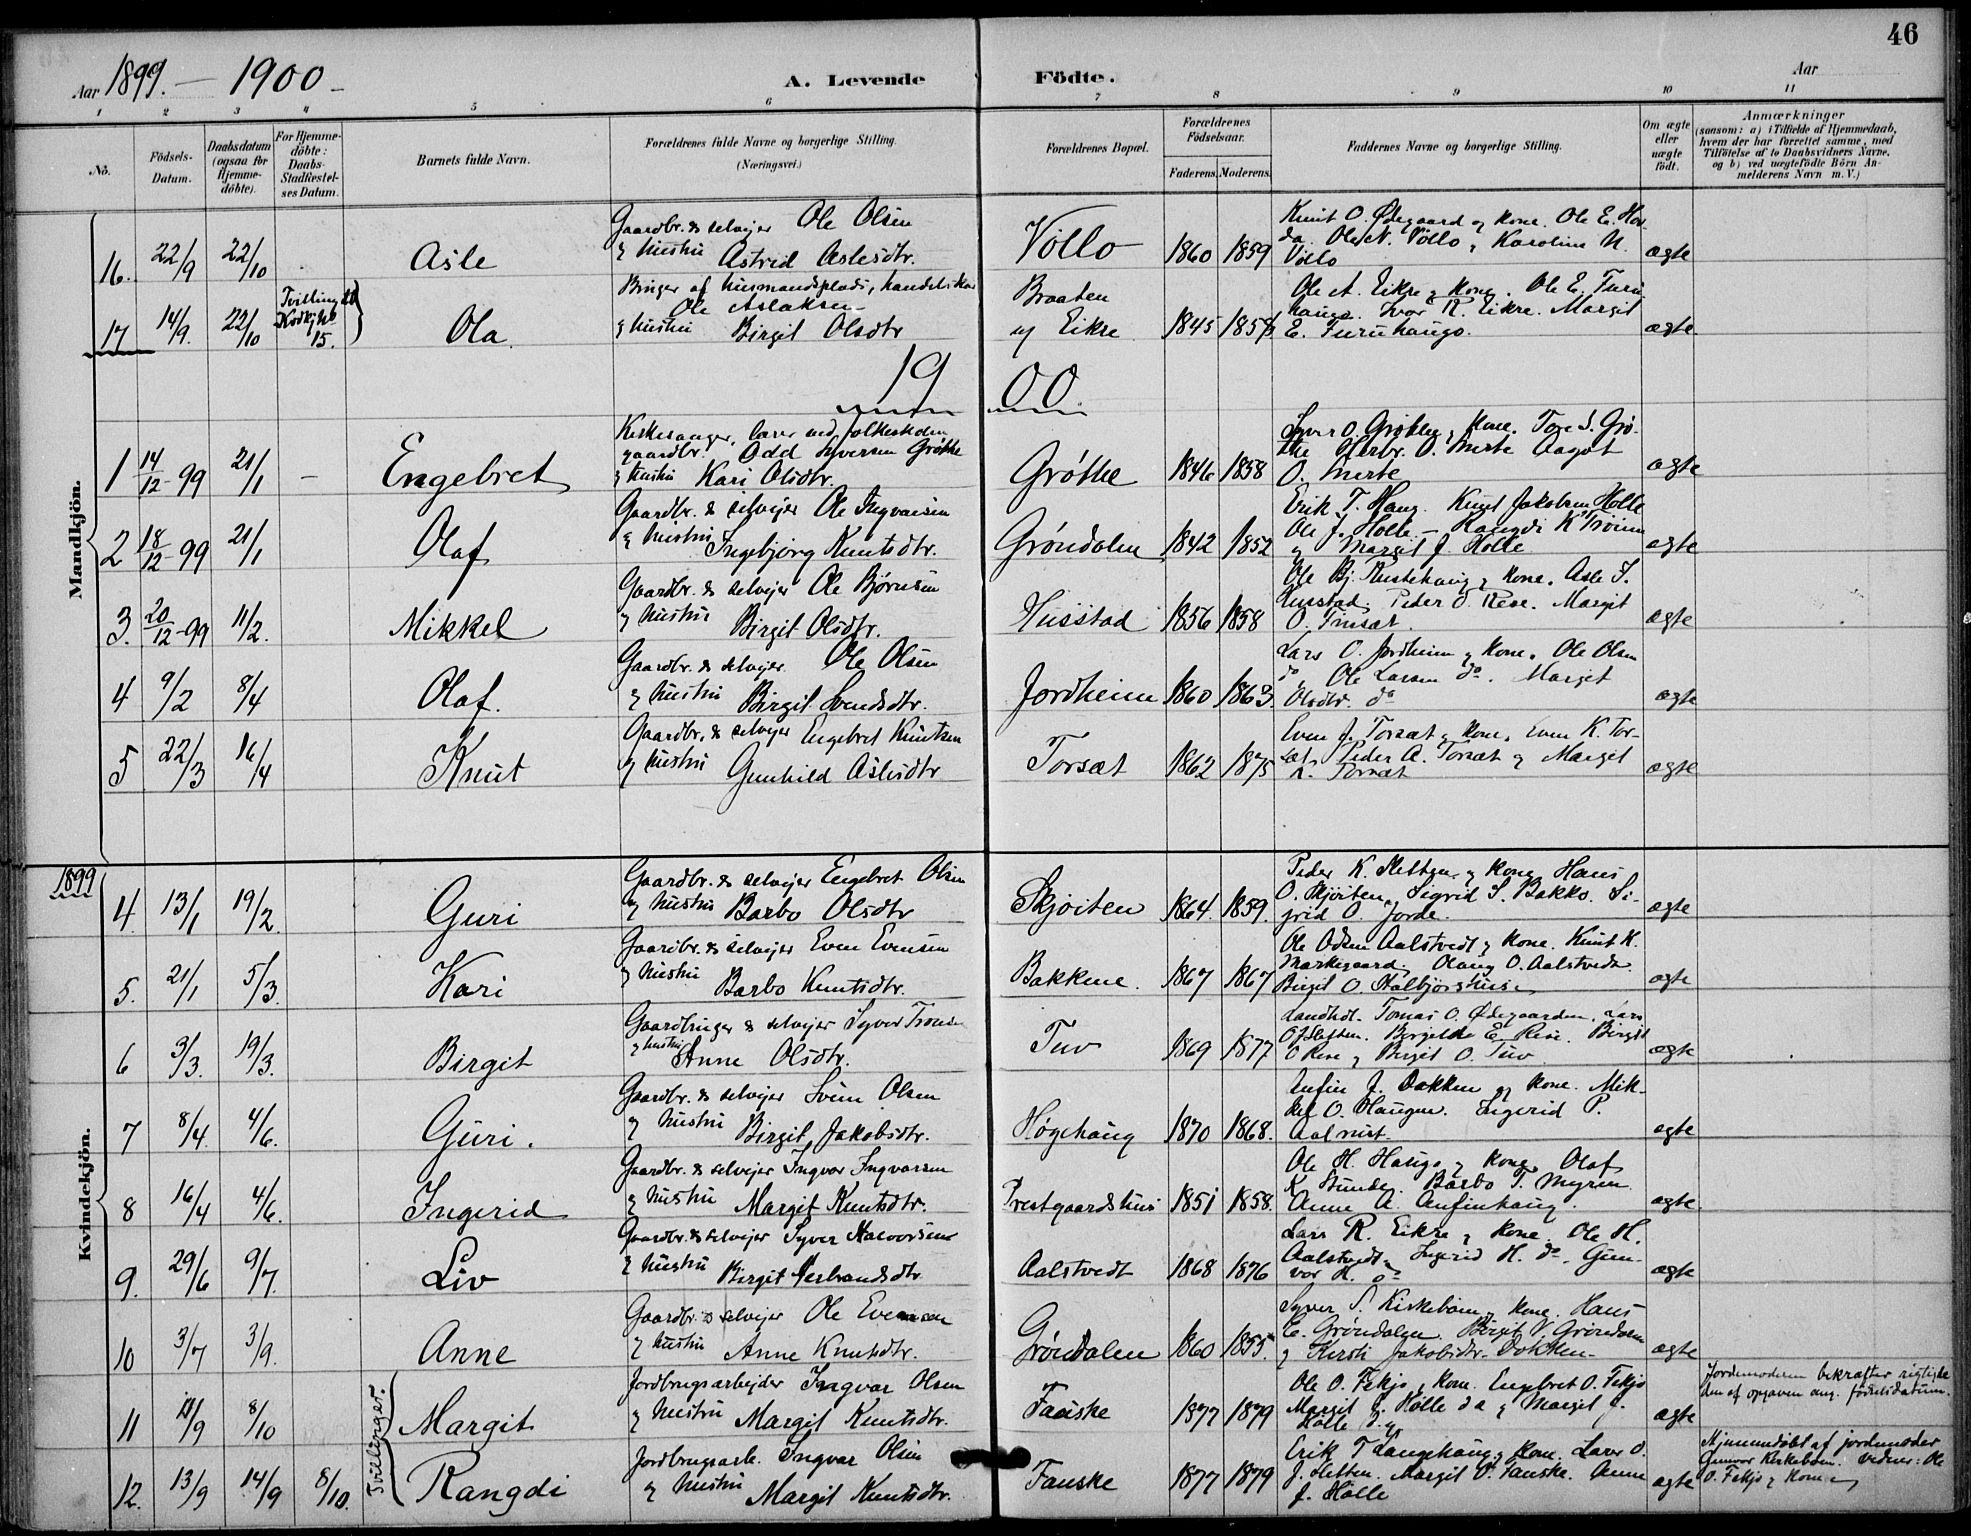 46
Aar 1899. — 1900 —
A. Levende Födte.
Aar
1 2 3 4 5 6 7 8 9 10 11
No.
Födsels-Datum.
Daabsdatum (ogsaa for Hjemme-döbte).
For Hjemme-döbte: Daabs-Stadfæstel-ses Datum.
Barnets fulde Navn.
Forældrenes fulde Navne og borgerlige Stilling. (Næringsvei.)
Forældrenes Bopæl.
Forældrenes Födselsaar.
Faderens. Moderens.
Faddernes Navne og borgerlige Stilling.
Om ægte eller uægte födt.
Anmærkninger
(saasom: a) i Tilfælde af Hjemmedaab, hvem der har forrettet samme, med Tilföielse af to Daabsvidners Navne, og b) ved uægtefödte Börn An-melderens Navn m. V.)
Mandkjön.
16. 22/9 22/10 Asle
Gaardbr. & selvejer Ole Olsen
og hustru Astrid Aslesdtr.
Völlo 1860 1859
Knut O. Ødegaard og kone. Ole E. Hov-
da. Ole N. Völlo, Karoline N.
Völlo
ægte
17 14/9. 22/10 Tvilling til Kvdkjkb 15. Ola
Bruger af husmandsplads, handelskar
Ole Aslaksen
og hustru Birgit Olsdtr
Braaten
u/ Eikre 1845 1858
Ole A. Eikre og kone. Ole E. Furu
haugo. Ivar R. Eikre. Margit
E. Furuhaugo.
ægte
1900
1 14/12-99 21/1 — Engebret
Kirkesanger, lærer ved folkeskolen
gaardbr. Odd Syversen Grøthe
og hustru Kari Olsdtr.
Grøthe 1846 1858
Syver O. Grøthe og kone. Tore S. Grø-
the Herbr. O. Mirte Aagot
O. Mirte
ægte
2 18/12 99 21/1 Olaf
Gaardbr. & selvejer Ole Ingvarsen
og hustru Ingebjørg Knutsdtr.
Grøndalen 1842 1852
Erik T. Haug. Knut Jakobsen Holle
Ole J. Holle — Rangdi K. Trøim
og Margit J. Holle
ægte
3. 20/12-99 11/2. Mikkel
Gaardbr. & selvejer Ole Bjørnsen
og hustru Birgit Olsdtr.
Husstad 1856 1858
Ole Bj. Rustehaug og kone. Asle S.
Husstad, Peder O. Rese. Margit
O. Trusæt.
ægte
4 9/2 8/4 Olaf.
Gaardbr. & selvejer. Ole Olsen
og hustru Birgit Svendsdtr.
Jordheim 1860 1863.
Lars O. Jordheim og kone. Ole Olsen
do Ole Larsen do. Margit
Olsdtr. do
ægte
5 22/3 16/4 Knut
Gaardbr. & selvejer Engebret Knutsen
og hustru Gunhild Aslesdtr
Torsæt 1862 1875
Even J. Torsæt og kone. Even K. Tor-
sæt, Peder A. Torsæt og Margit
K. Torsæt
ægte
1899
Kvindekjön.
4. 13/1 19/2. Guri
Gaardbr. & selvejer Engebret Olsen
og hustru Barbo Olsdtr
Skjøiten 1864 1859.
Peder K. Sletten og kone Hans
O. Skjøiten, Sigrid S. Bakko. Si-
grid O. Jorde.
ægte
5. 21/1 5/3. Kari
Gaardbr. & selvejer Even Evensen
og hustru Barbo Knutsdtr.
Bakkene. 1867 1867
Ole Odsen Aalstvedt og kone. Knut K.
Markegaard, Olaug O. Aalstvedt
Birgit O. Halbjørshus
ægte
6 3/3. 19/3. Birgit
Gaardbruger & selvejer Syver Tronsen
og hustru Anne Olsdtr.
Tuv 1869 1877
Landhdl. Tomas O. Ødegaarden, Lars
O. Sletten. Borgilda E. Rese. Birgit
O Rese og Birgit O. Tuv
ægte
7 8/4. 4/6. Guri.
Gaardbr. & selvejer Svein Olsen
og hustru Birgit Jakobsdtr.
Høgehaug 1870 1868.
Anfin J. Dokken og kone. Mik-
kel O. Haugen. Ingerid P.
Aalrust
ægte
8 16/4 4/6. Ingerid
Gaardbr. & selvejer Ingvar Ingvarsen
og hustru Margit Knutsdtr.
Prestgaardshus 1851 1858.
Ole H. Haugo og kone Olaf
K. Stunde. Barbo T. Myren
Anne A. Anfinhaug.
ægte.
9. 29/6 9/7. Liv
Gaardbr. & selvejer Syver Halvorsen
og hustru Birgit Herbrandsdtr.
Aalstvedt 1868 1876
Lars R. Eikre og kone Ole H.
Aalstvedt, Ingerid H. do. Gun-
vor H. do
ægte
10 3/7 3/9. Anne
Gaardbr. & selvejer Ole Evensen
og hustru Anne Knutsdtr.
Grøndalen 1860 1855.
Syver S. Kirkebøen og kone. Hans
E. Grøndalen. Birgit V. Grøndalen
og Kirsti Jakobsdtr. Dokken
ægte
Tvillinger.
11 11/9 8/10 Margit
Jordbrugsarbejder Ingvar Olsen
og hustru Margit Knutsdtr.
Fauske 1877 1879
Ole O. Fekjo og kone. Engebret O. Fekjo
Margit J. Holle do og Margit J.
Holle do
ægte
Jordemoderen bekræfter rigtighe
den af opgaven ang. fødselsdatum.
12. 13/9 14/9 8/10. Rangdi
Jordbrugsarb. Ingvar Olsen
og hustru Margit Knutsdtr.
Fauske 1877 1879
Erik T Langehaug og kone. Lars O.
J. Sletten. Margit O. Fauske. Anne
J. Holle
ægte
Hjemmedøbt af jordemoder
Gunvor Kirkebøen. Vidner: Ole
O. Fekjo og kone